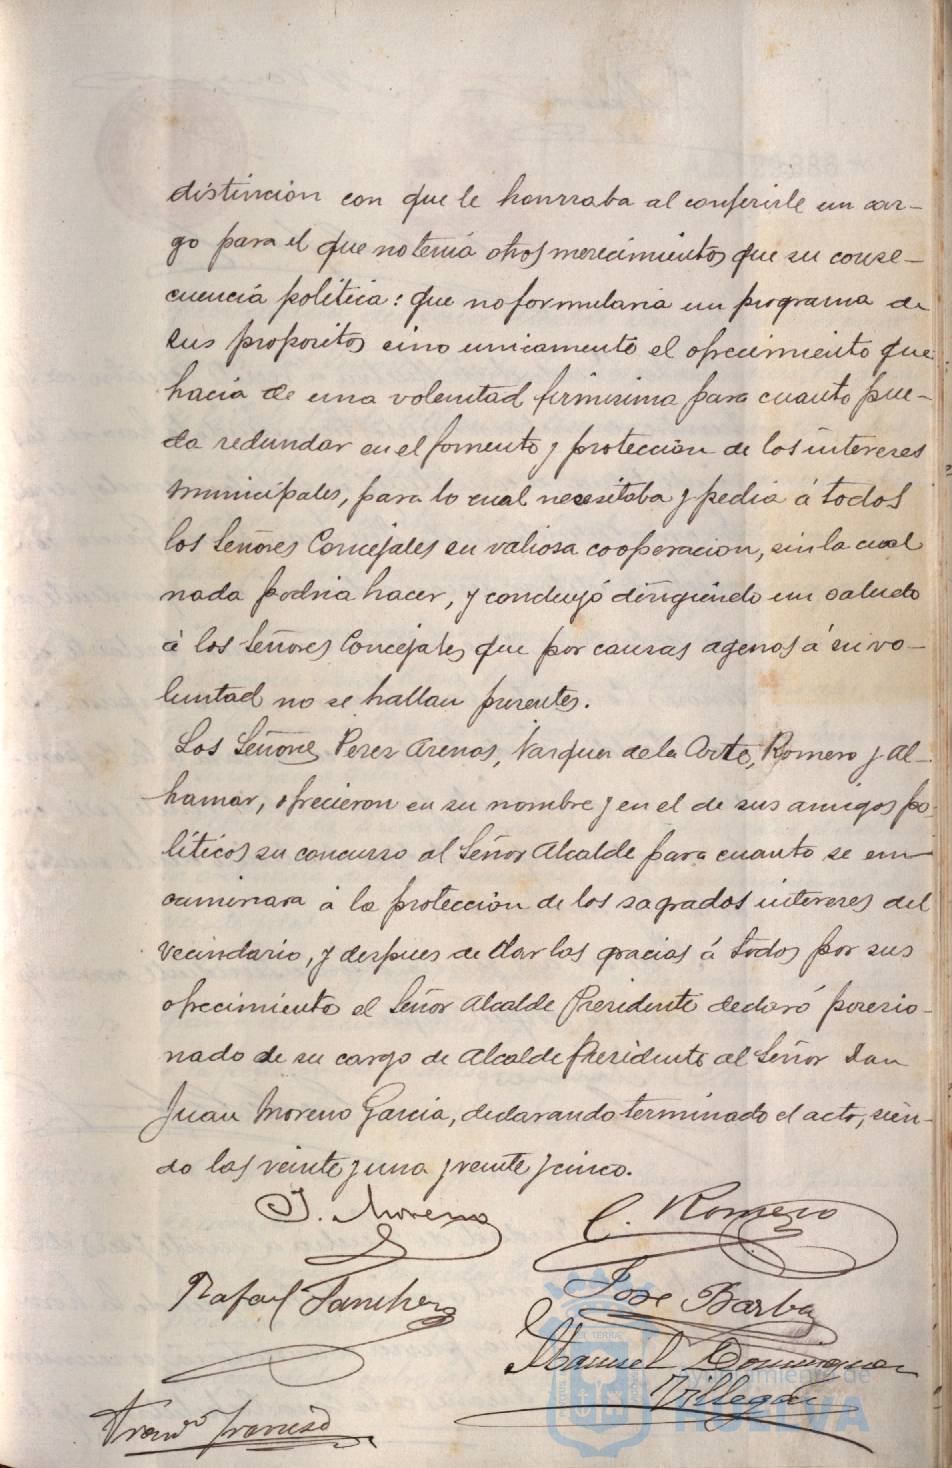 distincion con que le honrraba al conferirle un car-
go para el que no tenia otros merecimientos que su conse-
cuencia politica: que no formularia un programa de
sus propositos sino unicamente el ofrecimiento que
hacia de una voluntad firmisima para cuanto pue-
da redundar en el fomento y proteccion de los intereses
municipales, para lo cual necesitaba y pedia á todos
los Señores Concejales su valiosa cooperacion, sin la cual
nada podria hacer, y concluyó dirigiendo un saludo
á los Señores Concejales que por causas agenas á su vo-
luntad no se hallan presentes.
Los Señores Perez Arenas, Vazquez de la Corte, Romero y Al-
hamar, ofrecieron en su nombre y en el de sus amigos po-
líticos su concurso al Señor Alcalde para cuanto se en-
caminara á la proteccion de los sagrados intereses del
vecindario, y despues de dar las gracias á todos por sus
ofrecimiento el Señor Alcalde Presidente declaró posesio-
nado de su cargo de Alcalde Presidente al Señor Don
Juan Moreno Garcia, declarando terminado el acto, sien-
do las veinte y una y veinte y cinco.
J. Moreno C. Romero
Rafael Sanchez Jose Barba
Manuel Dominguez
Villegas
Ayuntamiento de
HUELVA